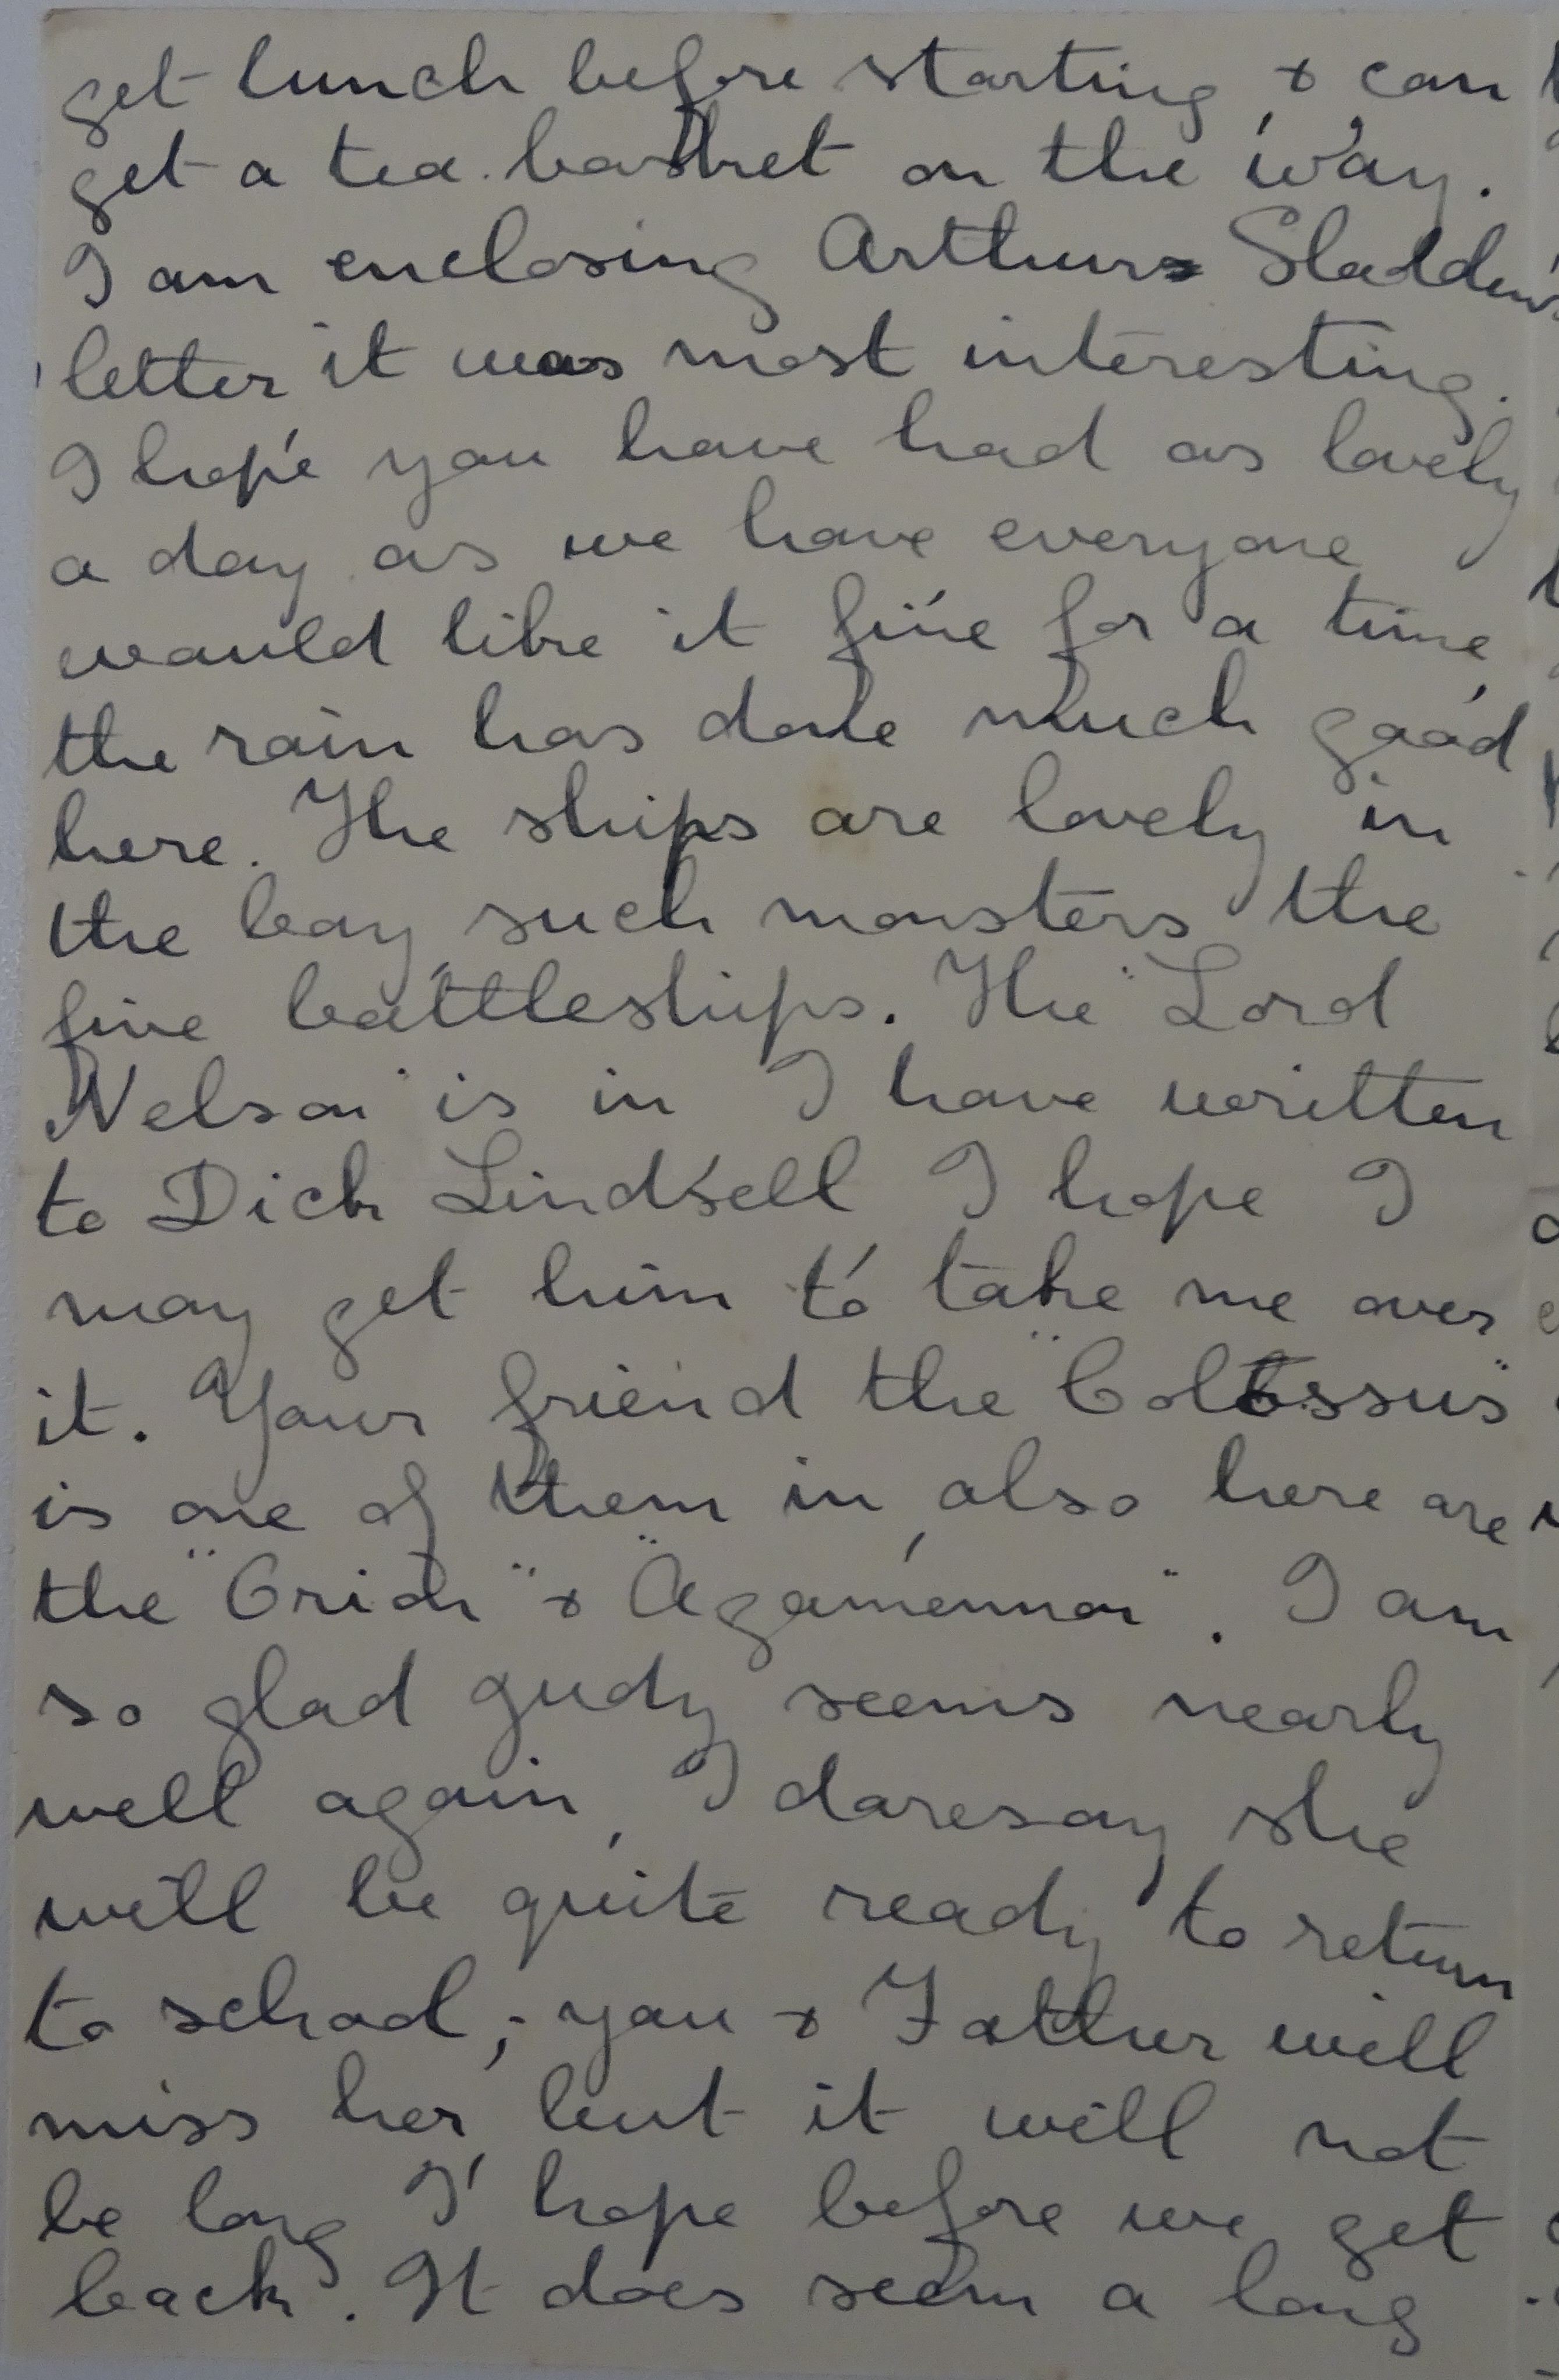 get lunch before starting, & can
get a tea basket on the way.
I am enclosing Arthurs Sladden's
letter it was most interesting.
I hope you have had as lovely
a day as we have everyone
would like it fine for a time,
the rain has done much good
here. The ships are lovely in
the bay, such monsters the
five battleships. The "Lord
Nelson" is in I have written
to Dick Lindsell I hope I
may get him to take me over
it. Your friend the "Colossus"
is one of them in, also here are
the "Orion" & "Agamemnon". I am
so glad Judy seems nearly
well again, I daresay she
will be quite ready to return
to school; you & Father will
miss her, but it will not
be long I hope before we get
back. It does seem a long